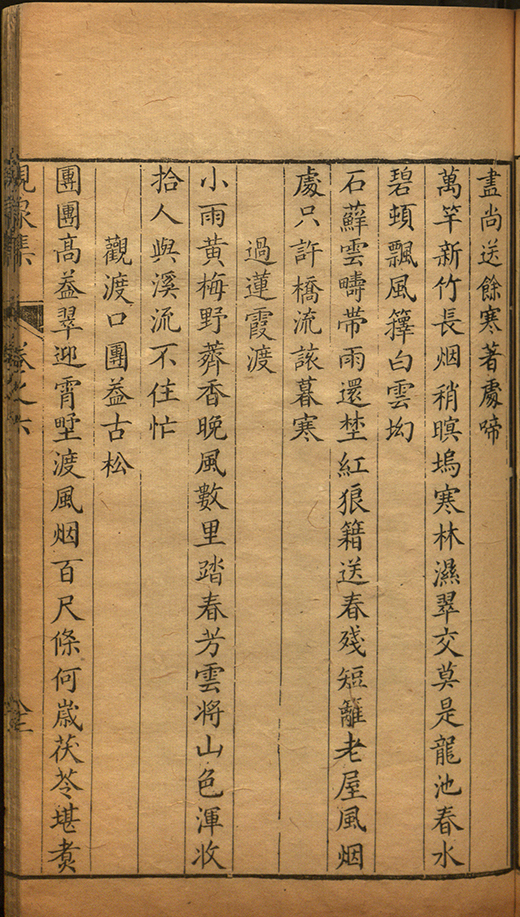 盡尚送餘寒著處啼
萬竿新竹長烟稍暝塢寒林濕翠交莫是龍池春水
碧頓飄風籜白雲坳
石蘚雲疇帶雨還埜紅狼籍送春殘短籬老屋風烟
處只許橋流該暮寒
過蓮霞渡
小雨黃梅野薺香晚風數里踏春芳雲将山色渾收
拾人與溪流不住忙
觀渡口團蓋古松
團團高蓋翠迎霄墅渡風烟百尺條何嵗茯苓堪煑
集
卷之六